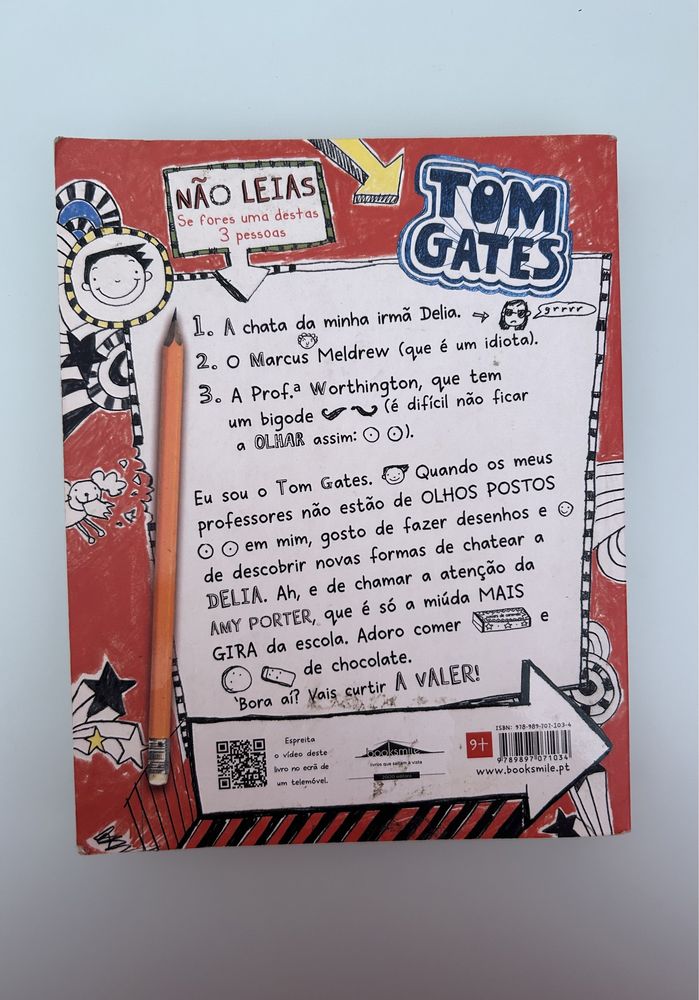 NÃO LEIAS
Se fores uma destas
3 pessoas
TOM
GATES
1. A chata da minha irmã Delia.
grrrr
2. O Marcus Meldrew (que é um idiota).
3. A Prof.ª Worthington, que tem
um bigode (é difícil não ficar
a OLHAR assim: ).
Eu sou o Tom Gates. Quando os meus
professores não estão de OLHOS POSTOS
em mim, gosto de fazer desenhos e
de descobrir novas formas de chatear a
DELIA. Ah, e de chamar a atenção da
AMY PORTER, que é só a miúda MAIS
GIRA da escola. Adoro comer e
de chocolate.
'Bora aí? Vais curtir A VALER!
Espreita
o vídeo deste
livro no ecrã de
um telemóvel.
booksmile
livros que saltam à vista
9+
ISBN: 978-989-707-103-4
9789897071034
www.booksmile.pt